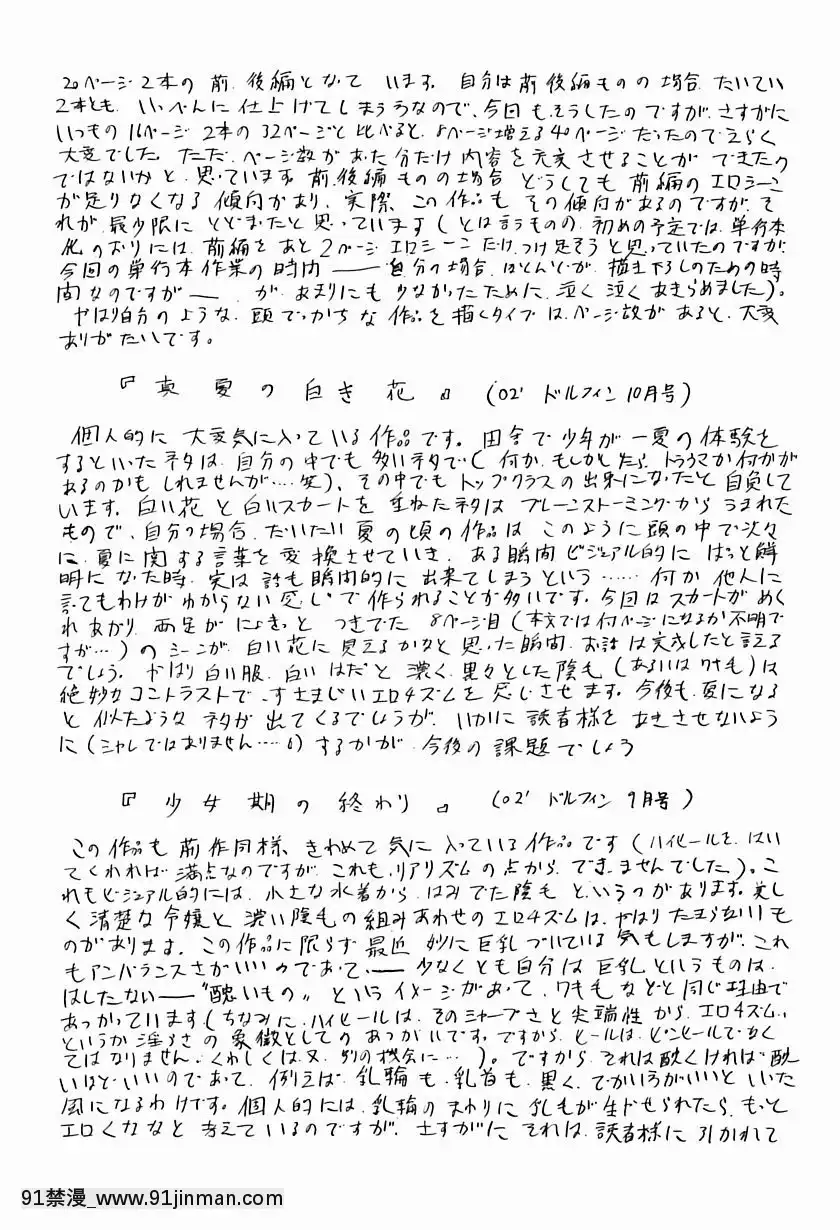 20ページ2本の前、後編となって います。自分は前後編ものの場合、たいてい
2本とも、いっぺんに仕上げてしまうなので、今回もそうしたのですが、さすがに
いつもの16ページ2本の32ページと比べると、8ページ増える40ページだったのでえらく
大変でした。ただ、ページ数があった分だけ内容を充実させることができたの
ではないかと、思っています。前、後編ものの場合どうしても前編のエロシーン
が足りなくなる傾向があり、実際、この作品もその傾向があるのですが、そ
れが最少限にとどまったと思っています(とは言うものの、初めの予定では、単行本
化のおりには、前編をあと2ページエロシーンだけ、つけ足そうと思っていたのですが、
今回の単行本作業の時間――自分の場合、ほとんどが描き下ろしのための時
間なのですが――が、あまりにも少なかったために、泣く泣くあきらめました)。
やはり自分のような、頭でっかちな作品を描くタイプは、ページ数があると、大変
ありがたいです。
『真夏の白き花』(02' ドルフィン10月号)
個人的に大変気に入っている作品です。田舎で少年が一夏の体験を
するといったネタは、自分の中でも多いネタで(何か、もしかしたら、トラウマか何かが
あるのかもしれませんが…笑)、その中でもトップクラスの出来になったと自負して
います。白い花と白いスカートを重ねたネタはブレーンストーミングからうまれた
もので、自分の場合、だいたい夏の頃の作品はこのように頭の中で次々
に、夏に関する言葉を変換させていき、ある瞬間ビジュアル的にはっと鮮
明になった時、実は話も瞬間的に出来てしまうという……何か他人に
言ってもわけがわからない感じで作られることが多いです。今回はスカートがめく
れあがり、両足がにょきっとつきでた8ページ目(本文では何ページになるか不明で
すが…)のシーンが、白い花に見えるかなと思った瞬間、お話は完成したと言える
でしょう。やはり白い服、白いはだと濃く、黒々とした陰毛(あるいはワキ毛)は
絶妙なコントラストで、すさまじいエロチズムを感じさせます。今後も、夏になる
と似たようなネタが出てくるでしょうが、いかに読者様をあきさせないよう
に(シャレではありません…)するかが、今後の課題でしょう
『少女期の終わり』(02' ドルフィン9月号)
この作品も前作同様、きわめて気に入っている作品です(ハイヒールを、はい
てくれれば満点なのですが、これもリアリズムの点から、できませんでした)。こ
れもビジュアル的には、小さな水着から、はみでた陰毛というのがあります。美し
く清楚な令嬢と濃い陰毛の組みあわせのエロチズムは、やはりたまらないも
のがあります。この作品に限らず最近妙に巨乳づいている気もしますが、これ
もアンバランスさがいいのであって、――少なくとも自分は巨乳というものは、
はしたない――“醜いもの”というイメージがあって、ワキ毛などと同じ理由で
あつかっています(ちなみに、ハイヒールは、そのシャープさと尖端性から、エロチズム、
というか淫らさの象徴としてのあつかいです。ですから、ヒールは、ピンヒールでなく
てはなりません。くわしくは、又、別の機会に…)。ですから、それは醜くければ醜
いほどいいのであって、例えば、乳輪も、乳首も、黒く、でかいほうがいいといった
風になるわけです。個人的には、乳輪のまわりに乳毛が生やせられたら、もっと
エロくなると考えているのですが、さすがにそれは、読者様に引かれて
91禁漫_www.91jinman.com